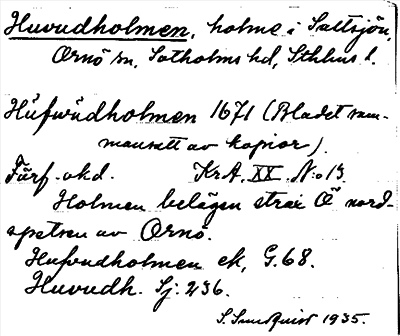 Huvudholmen, holme i Saltsjön,
Ornö sn, Sotholms hd, Sthlms l.
Hufwudholmen 1671 (Bladet sam-
mansatt av kopior).
Färf. okd. KrA. XX. N:o 13.
Holmen belägen strax Ö nord-
spetsen av Ornö.
Hufvudholmen ek, G. 68.
Huvudh. Sj: 236.
S. Sundquist 1935.